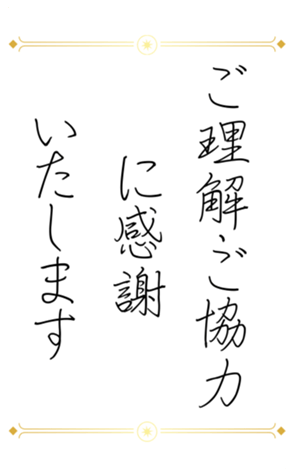 ご理解・ご協力
に感謝
いたします